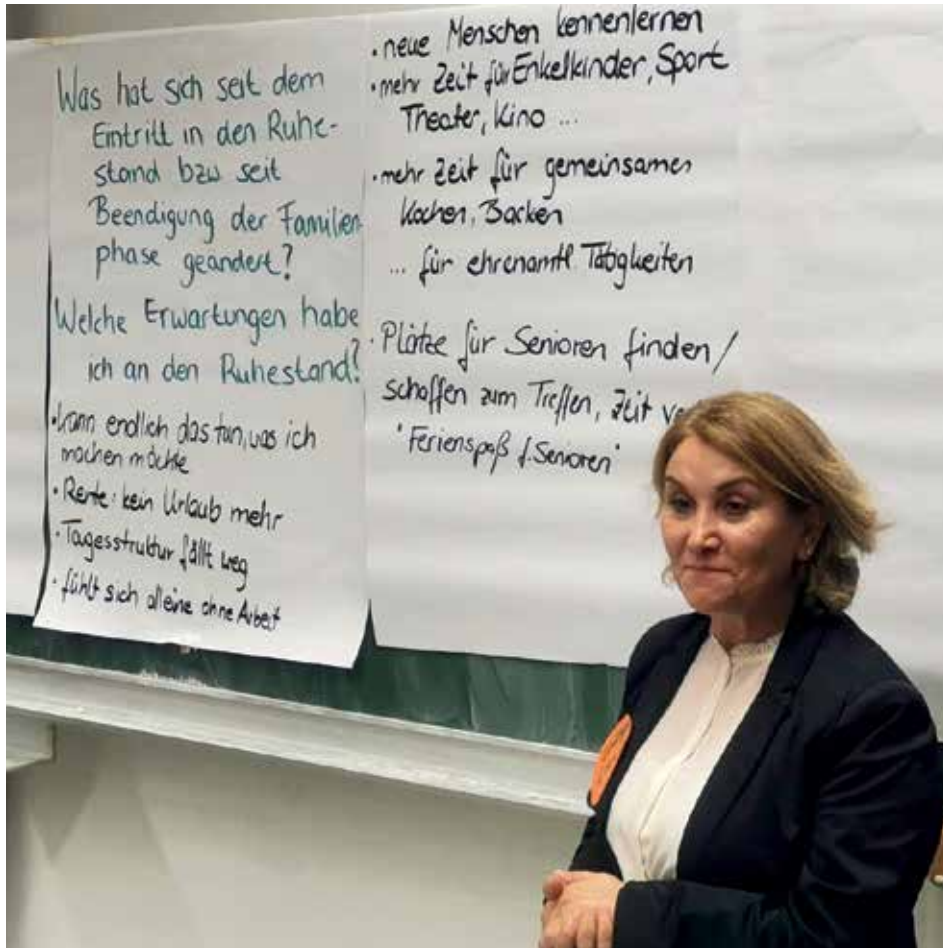 Was hat sich seit dem
Eintritt in den Ruhe-
stand bzw seit
Beendigung der Familien-
phase geändert?
Welche Erwartungen habe
ich an den Ruhestand?
· kann endlich das tun, was ich
machen möchte
· Rente: kein Urlaub mehr
· Tagesstruktur fällt weg
· fühlt sich alleine ohne Arbeit
· neue Menschen kennenlernen
· mehr Zeit für Enkelkinder, Sport
Theater, Kino ...
· mehr Zeit für gemeinsames
Kochen, Backen
... für ehrenamtl. Tätigkeiten
· Plätze für Senioren finden /
schaffen zum Treffen, Zeit
"Ferienspaß f. Senioren"